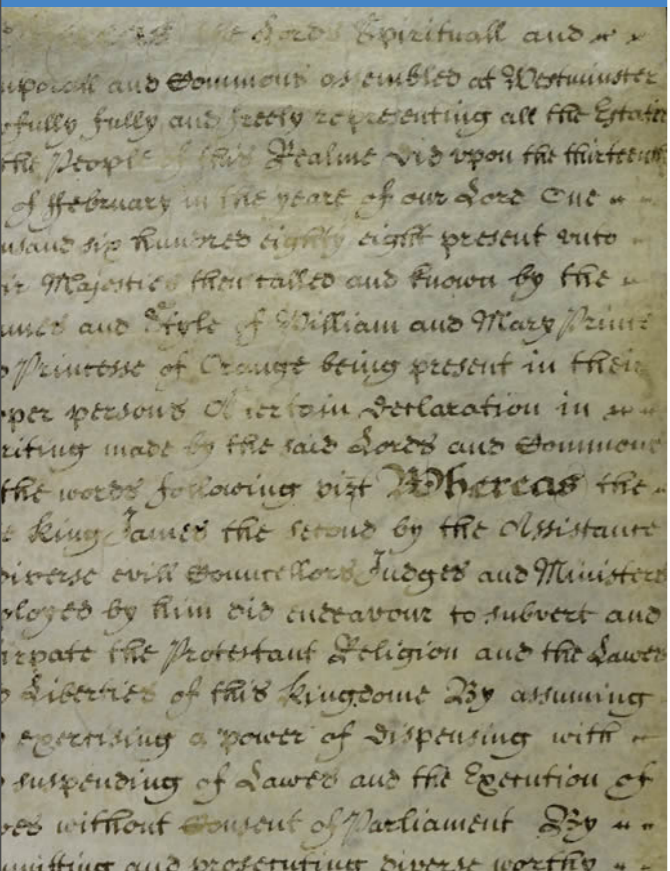 the Lords Spirituall and
mporall and Commons assembled at Westminster
fully fully and freely representing all the Estates
the People of this Realme did vpon the thirteenth
of ffebruary in the yeare of our Lord One
usand six hundred eighty eight present vnto
ir Majesties then called and known by the
ames and Style of William and Mary Prince
Princesse of Orange being present in their
per persons A certain Declaration in
riting made by the said Lords and Commons
the words following vizt Whereas the
e King James the second by the Assistance
diverse evill Councellors Judges and Ministers
ployed by him did endeavour to subvert and
irpate the Protestant Religion and the Lawes
Liberties of this Kingdome By assuming
exercising a power of dispensing with
suspending of Lawes and the Execution of
wes without Consent of Parliament By
mitting and prosecuting diverse worthy